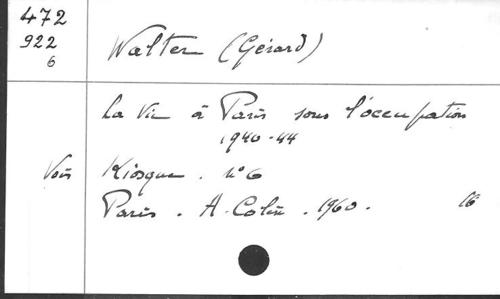 472
922
6
Walter (Gérard)
La Vie à Paris sous l'occupation
1940-44
Voir Kiosque . n° 6
Paris . A. Colin . 1960 . 16°